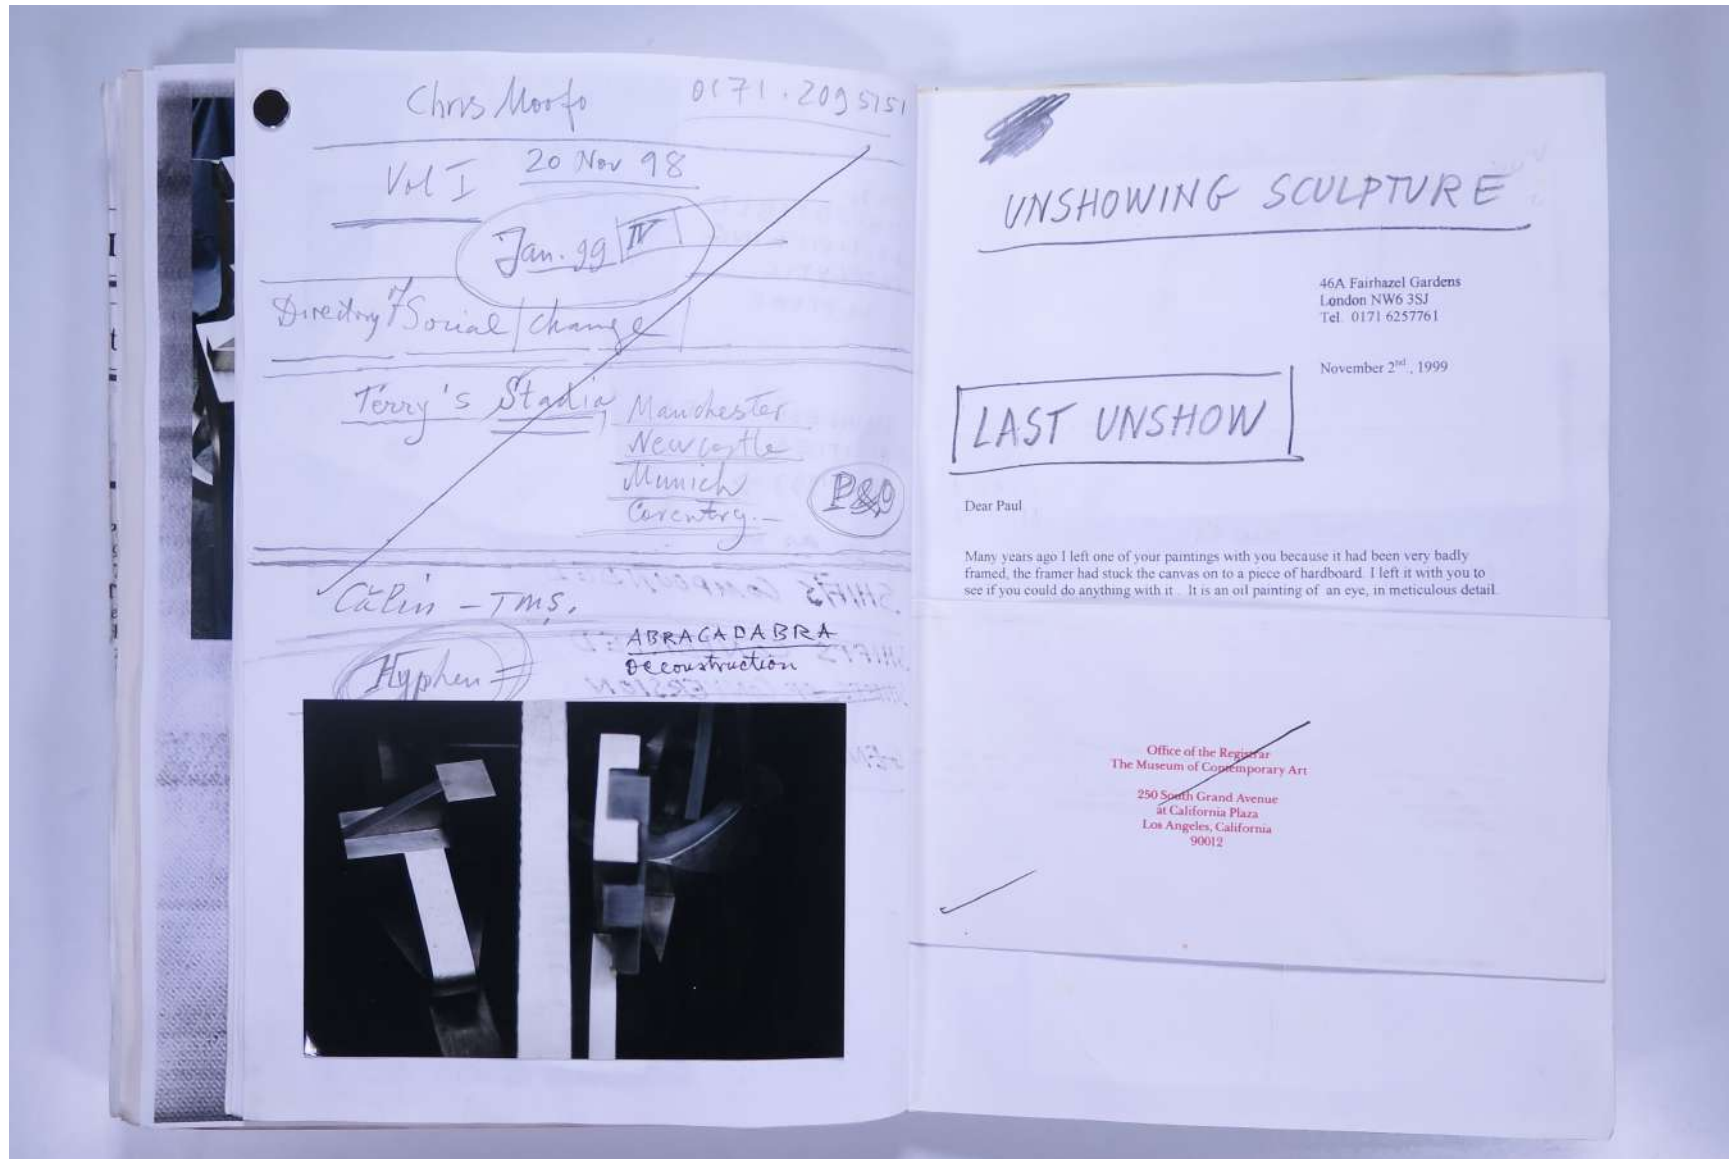 Chris Moofo 0171.2095151
Vol I 20 Nov 98
Jan. 99 IV
Directory of Social change
Terry's Stadia, Manchester
Newcastle
Munich
Coventry.-
P&O
Călin - TMS.
ABRACADABRA
Deconstruction
Hyphen =
UNSHOWING SCULPTURE
46A Fairhazel Gardens
London NW6 3SJ
Tel. 0171 6257761
November 2nd, 1999
LAST UNSHOW
Dear Paul
Many years ago I left one of your paintings with you because it had been very badly
framed, the framer had stuck the canvas on to a piece of hardboard. I left it with you to
see if you could do anything with it . It is an oil painting of an eye, in meticulous detail.
Office of the Registrar
The Museum of Contemporary Art
250 South Grand Avenue
at California Plaza
Los Angeles, California
90012